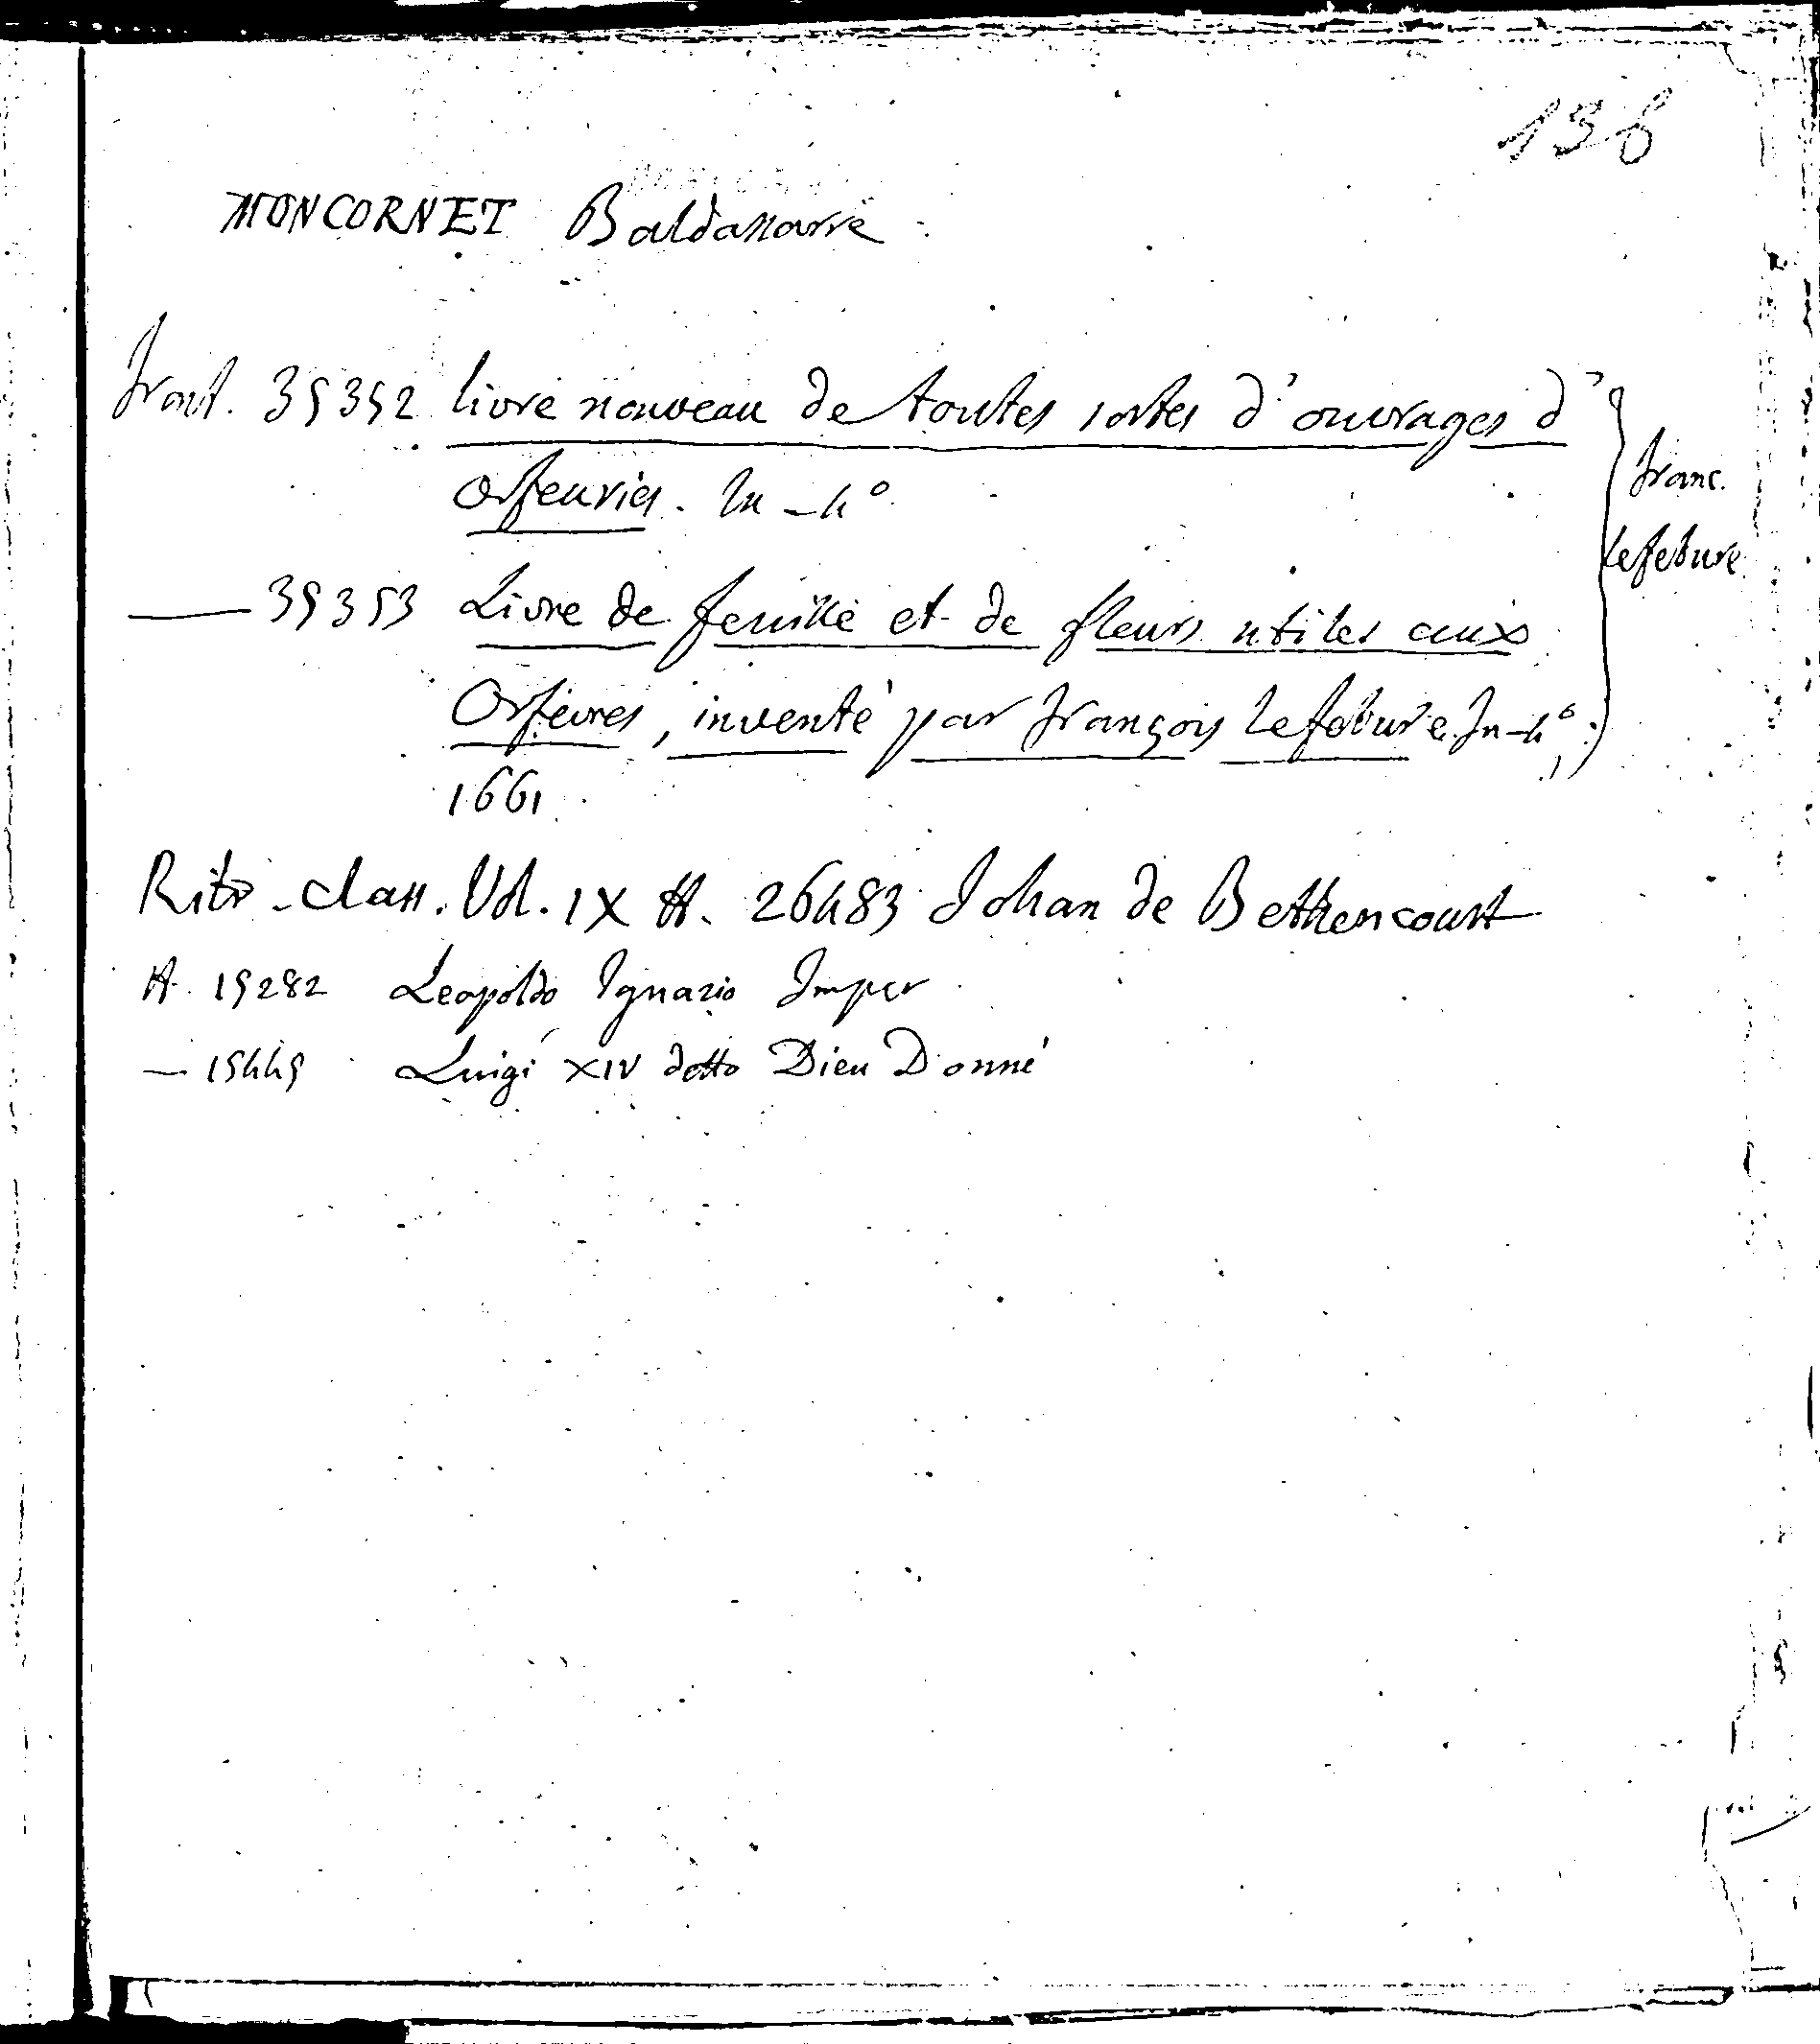 136
MONCORNET Baldassarre
Front. 39352 Livre nouveau de toutes sortes d'ouvrages d'
Orfeuries. In-4°
Franc.
Lefebure
— 39353 Livre de feuille et de fleurs utiles aux
Orfèvres, inventé par François Lefebure. In-4°;
1661
Ritr-Class. Vol. IX A. 26483 Johan de Bethencourt
A. 19282 Leopoldo Ignazio Imper
— 15449 Luigi XIV detto Dieu Donné